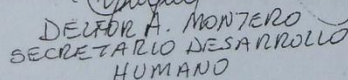 DELFOR A. MONTERO
SECRETARIO DESARROLLO
HUMANO